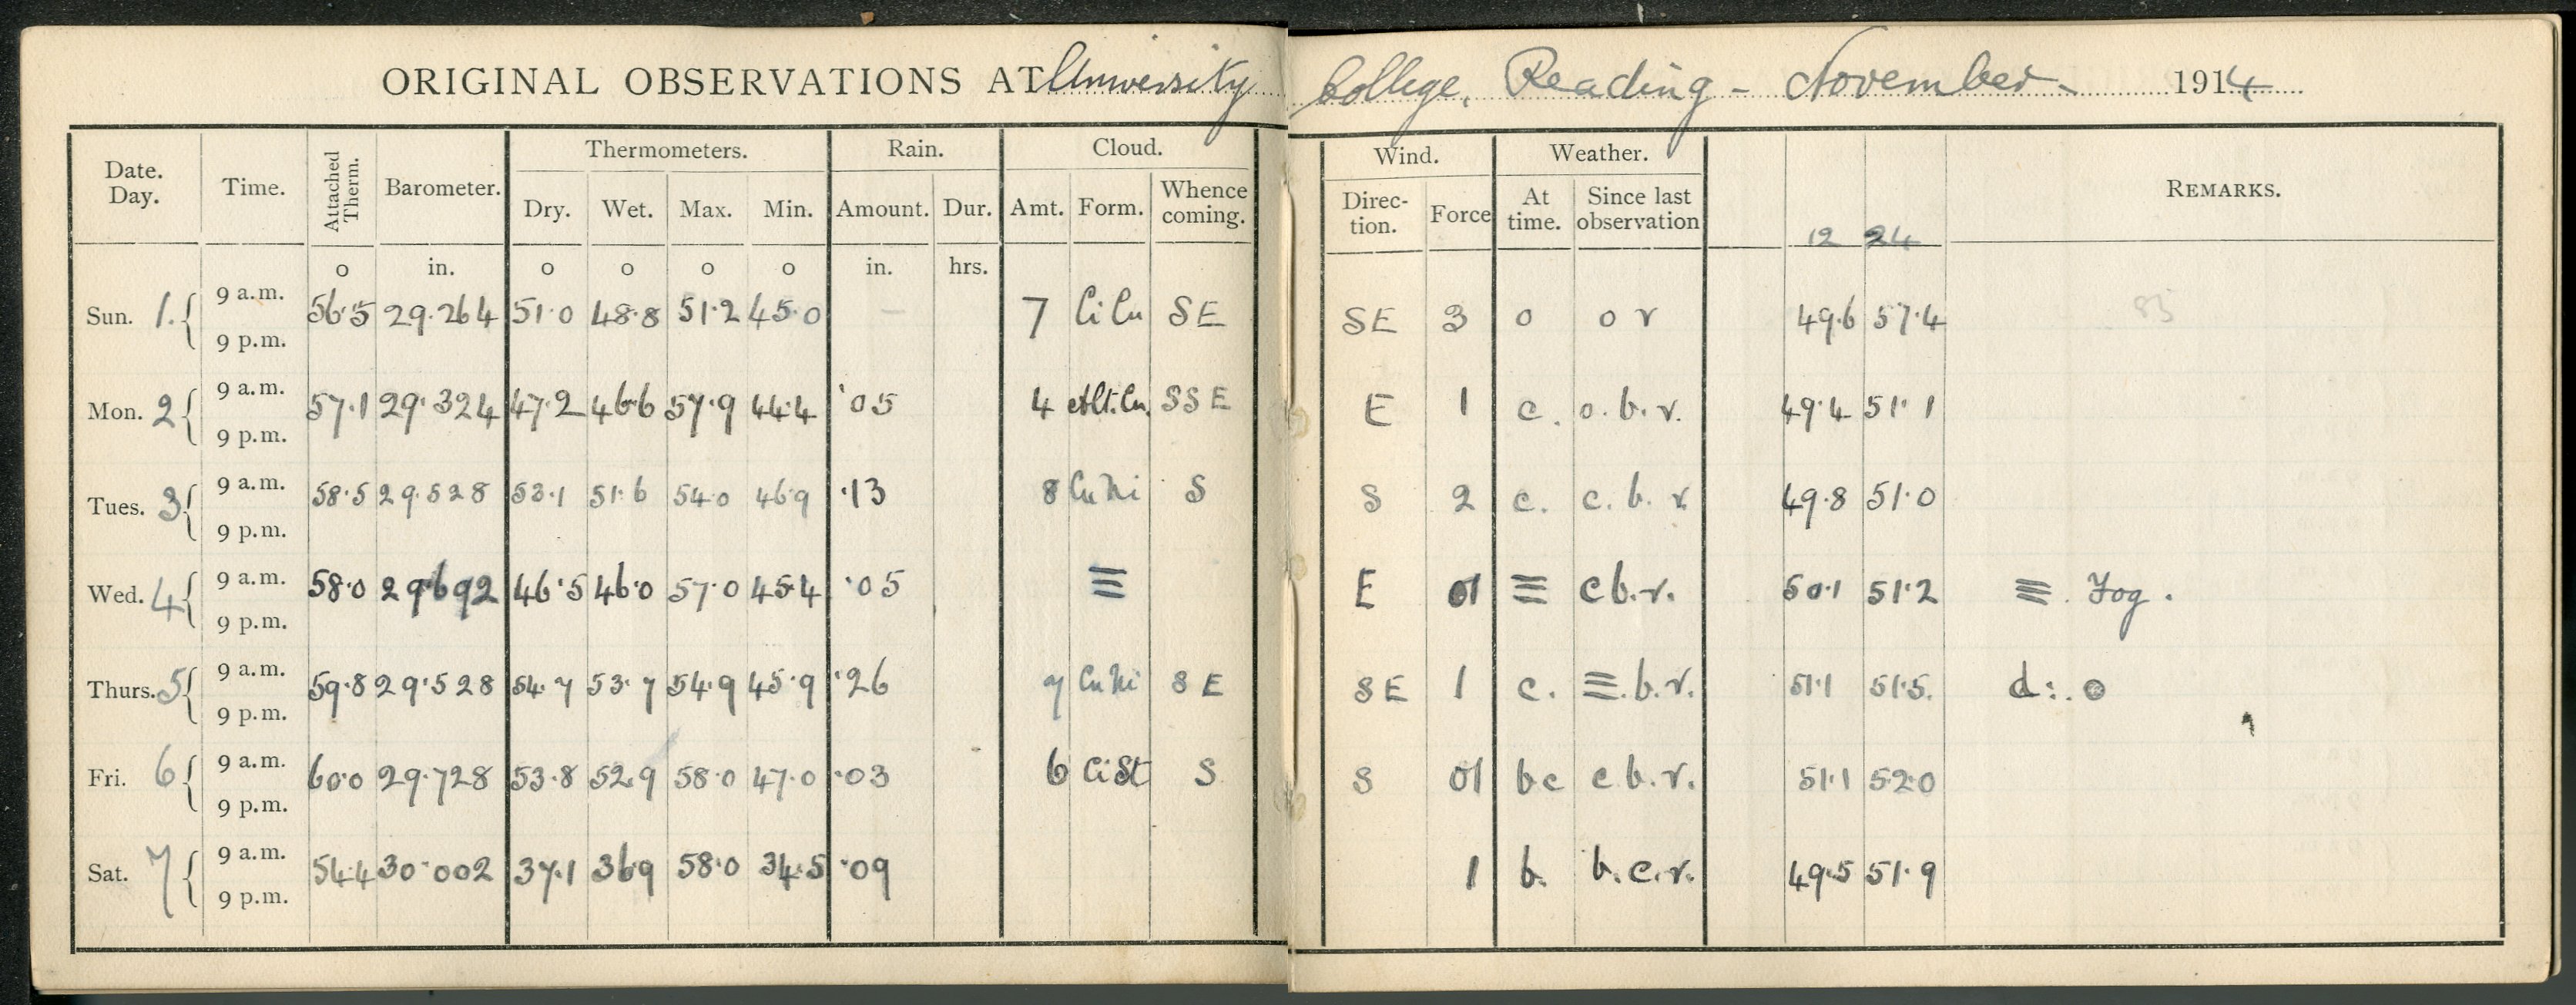 ORIGINAL OBSERVATIONS AT University College, Reading - November - 1914
Date. Day. Time. Attached Therm. Barometer. Thermometers. Rain. Cloud. Wind. Weather. REMARKS.
Dry. Wet. Max. Min. Amount. Dur. Amt. Form. Whence coming. Direction. Force At time. Since last observation 12 24
o in. o o o o in. hrs.
Sun. 1. 9 a.m. 56.5 29.264 51.0 48.8 51.2 45.0 — 7 Ci Cu SE SE 3 o o r 49.6 57.4 85
9 p.m.
Mon. 2 9 a.m. 57.1 29.324 47.2 46.6 57.9 44.4 .05 4 Alt. Cu. SSE E 1 c. o. b. r. 49.4 51.1
9 p.m.
Tues. 3 9 a.m. 58.5 29.528 53.1 51.6 54.0 46.9 .13 8 Cu Ni S S 2 c. c. b. r. 49.8 51.0
9 p.m.
Wed. 4 9 a.m. 58.0 29.692 46.5 46.0 57.0 45.4 .05 ≡ E ≡ c b. r. 50.1 51.2 ≡. Fog.
9 p.m.
Thurs. 5 9 a.m. 59.8 29.528 54.7 53.7 54.9 45.9 .26 7 Cu Ni SE SE 1 c. ≡. b. r. 51.1 51.5. d:. o
9 p.m.
Fri. 6 9 a.m. 60.0 29.728 53.8 52.9 58.0 47.0 .03 6 Ci St S S bc c. b. r. 51.1 52.0
9 p.m.
Sat. 7 9 a.m. 54.4 30.002 37.1 36.9 58.0 34.5 .09 1 b. b. c. r. 49.5 51.9
9 p.m.